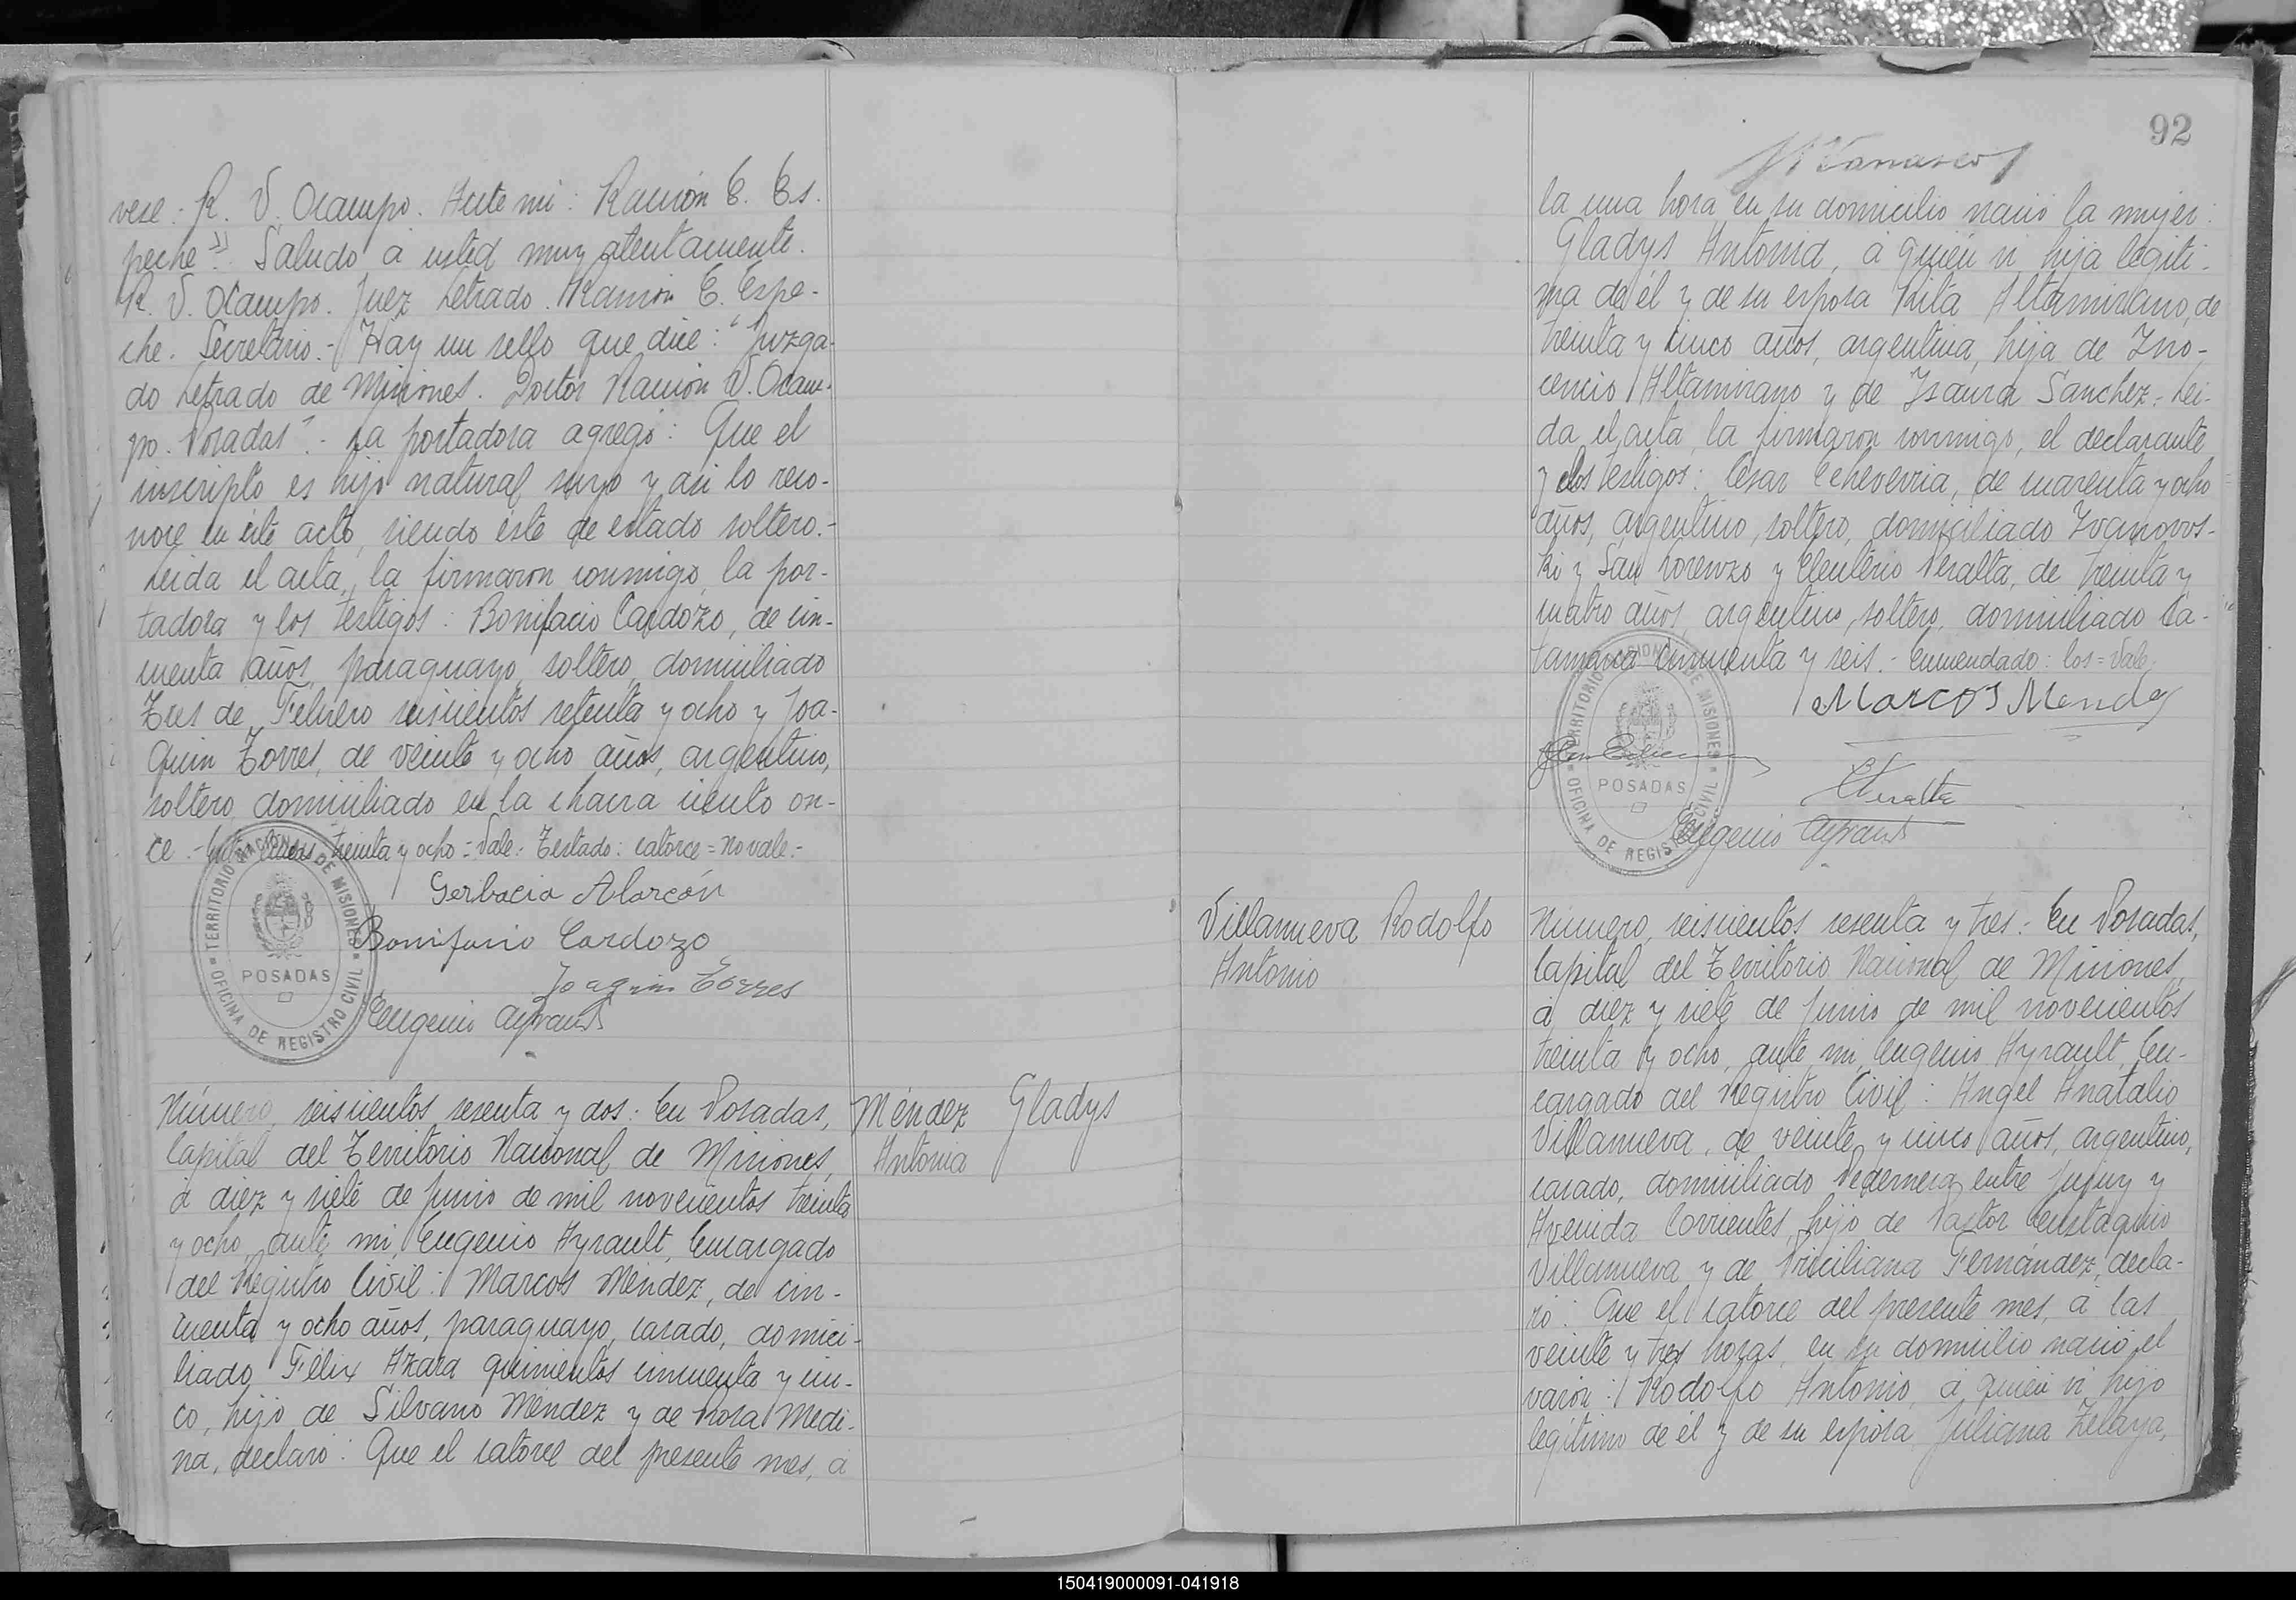 vese: R. V. Ocampo. Ante mi: Ramón E. Es-
peche". Saludo á usted muy atentamente.
R. V. Ocampo. Juez Letrado. Ramón E. Espe-
che. Secretario.- Hay un sello que dice: "Juzga-
do Letrado de Misiones. Doctor Ramón V. Ocam-
po. Posadas".- La portadora agregó: Que el
inscripto es hijo natural suyo y asi lo reco-
noce en este acto, siendo éste de estado soltero.-
Leida el acta, la firmaron conmigo, la por-
tadora y los testigos: Bonifacio Cardozo, de cin-
cuenta años, paraguayo, soltero, domiciliado
Tres de Febrero seiscientos setenta y ocho y Joa-
quin Torres, de veinte y ocho años, argentino,
soltero, domiciliado en la chacra ciento on-
ce.- Entre lineas: treinta y ocho = Vale.- Testado: catorce = No vale.-
Gerbacia Alarcón
Bonifacio Cardozo
Joaquin Torres
Eugenio Ayrault
TERRITORIO NACIONAL DE MISIONES
POSADAS
OFICINA DE REGISTRO CIVIL
Número, seiscientos sesenta y dos: En Posadas,
Capital del Territorio Nacional de Misiones,
á diez y siete de Junio de mil novecientos treinta
y ocho, ante mi, Eugenio Ayrault, Encargado
del Registro Civil: Marcos Méndez, de cin-
cuenta y ocho años, paraguayo, casado, domici-
liado Félix Azara quinientos cincuenta y cin-
co, hijo de Silvano Méndez y de Rosa Medi-
na, declaró: Que el catorce del presente mes, á
Méndez Gladys
Antonia
92
la una hora en su domicilio nació la mujer:
Gladys Antonia, á quién vi hija legiti-
ma de él y de su esposa Rita Altamirano, de
treinta y cinco años, argentina, hija de Ino-
cencio Altamirano y de Isaura Sanchez.- Lei-
da el acta, la firmaron conmigo, el declarante
y los testigos: Cesar Echeverria, de cuarenta y ocho
años, argentino, soltero, domiciliado Ivanovos-
ki y San Lorenzo y Eleuterio Peralta, de treinta y
cuatro años, argentino, soltero, domiciliado Ca-
tamarca cincuenta y seis.- Enmendado: los = Vale.
Marcos Mendez
EPeralta
Eugenio Ayrault
TERRITORIO NACIONAL DE MISIONES
POSADAS
OFICINA DE REGISTRO CIVIL
Villanueva Rodolfo
Antonio
Número, seiscientos sesenta y tres: En Posadas,
Capital del Territorio Nacional de Misiones,
á diez y siete de Junio de mil novecientos
treinta y ocho, ante mi, Eugenio Ayrault, En-
cargado del Registro Civil: Angel Anatalio
Villanueva, de veinte y cinco años, argentino,
casado, domiciliado Pedernera entre Jujuy y
Avenida Corrientes, hijo de Pastor Eustaquio
Villanueva y de Priciliana Fernández, decla-
ró: Que el catorce del presente mes, á las
veinte y tres horas, en su domicilio nació el
varón: Rodolfo Antonio, á quien vi hijo
legitimo de él y de su esposa Juliana Zelaya,
150419000091-041918